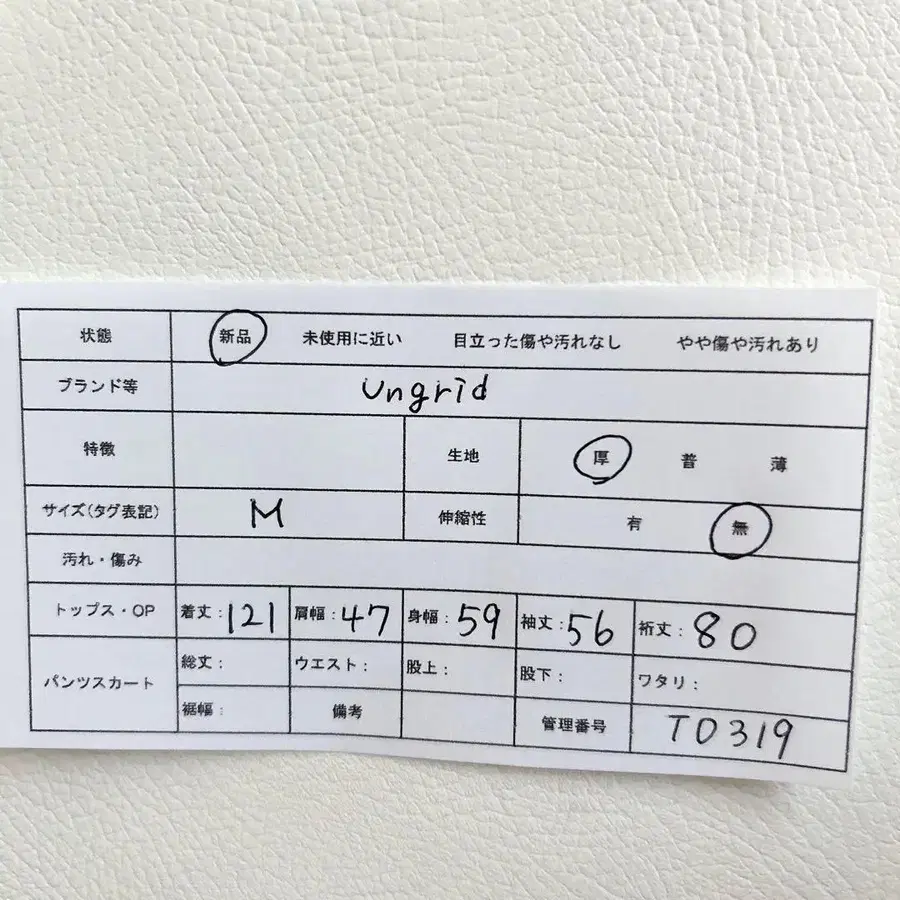 状態 新品 未使用に近い 目立った傷や汚れなし やや傷や汚れあり
ブランド等 ungrid
特徴 生地 厚 普 薄
サイズ(タグ表記) M 伸縮性 有 無
汚れ・傷み
トップス・OP 着丈:121 肩幅:47 身幅:59 袖丈:56 裄丈:80
パンツスカート 総丈: ウエスト: 股上: 股下: ワタリ:
裾幅: 備考 管理番号 TO319